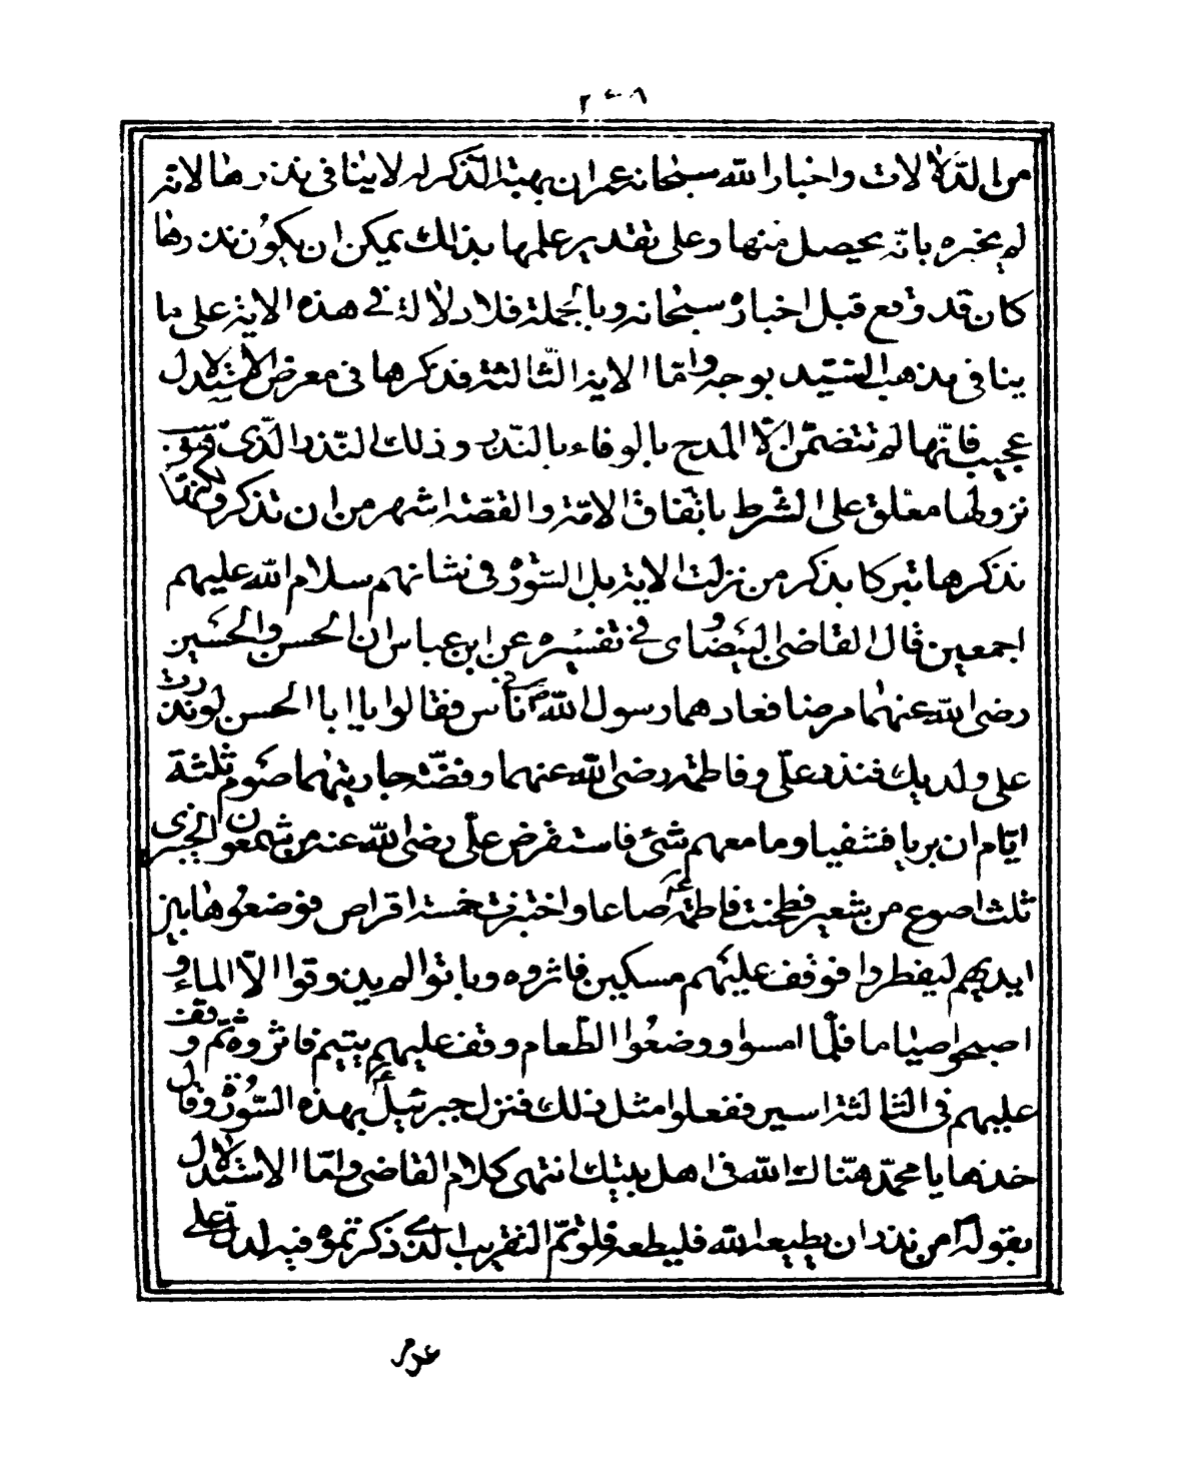 من الدلالات واخبار الله سبحانه عمران بهبة الذكر له لا ينافى نذرها لانه
لم يخبره بانه يحصل منها وعلى تقدير علمها بذلك يمكن ان يكون نذرها
كان قد وقع قبل اخباره سبحانه وبالجملة فلا دلالة فى هذه الاية على ما
ينافى مذهب السيد بوجه واما الاية الثالثة فذكرها فى معرض الاستدلال
عجيب فانها لم تتضمن الا المدح بالوفاء بالنذر وذلك النذر الذى
نزولها معلق على الشرط باتفاق الامة والقصة اشهر من ان تذكر ولكنا
نذكرها تبركا بذكر من نزلت الاية بل السورة فى شانهم سلام الله عليهم
اجمعين قال القاضى البيضاوى فى تفسيره عن ابن عباس ان الحسن والحسين
رضى الله عنهما مرضا فعادهما رسول الله ص فى ناس فقالوا يا ابا الحسن لو نذرت
على ولديك فنذر على وفاطمة رضى الله عنهما وفضة جاريتهما صوم ثلثة
ايام ان بريا فشفيا وما معهم شئ فاستقرض على رضى الله عنه من شمعون الخيبرى
ثلث اصوع من شعير فطحنت فاطمة صاعا واختبزت خمسة اقراص فوضعوها بين
ايديهم ليفطروا فوقف عليهم مسكين فاثروه وباتوا لم يذوقوا الا الماء و
اصبحوا صياما فلما امسوا ووضعوا الطعام وقف عليهم يتيم فاثروه ثم وقف
عليهم فى الثالثة اسير ففعلوا مثل ذلك فنزل جبرئيل ع بهذه السورة وقال
خذها يا محمد هناك الله فى اهل بيتك انتهى كلام القاضى واما الاستدلال
بقوله ص من نذر ان يطيع الله فليطعه فلو تم التقريب الذى ذكرتموه فيه لدل على
عدم